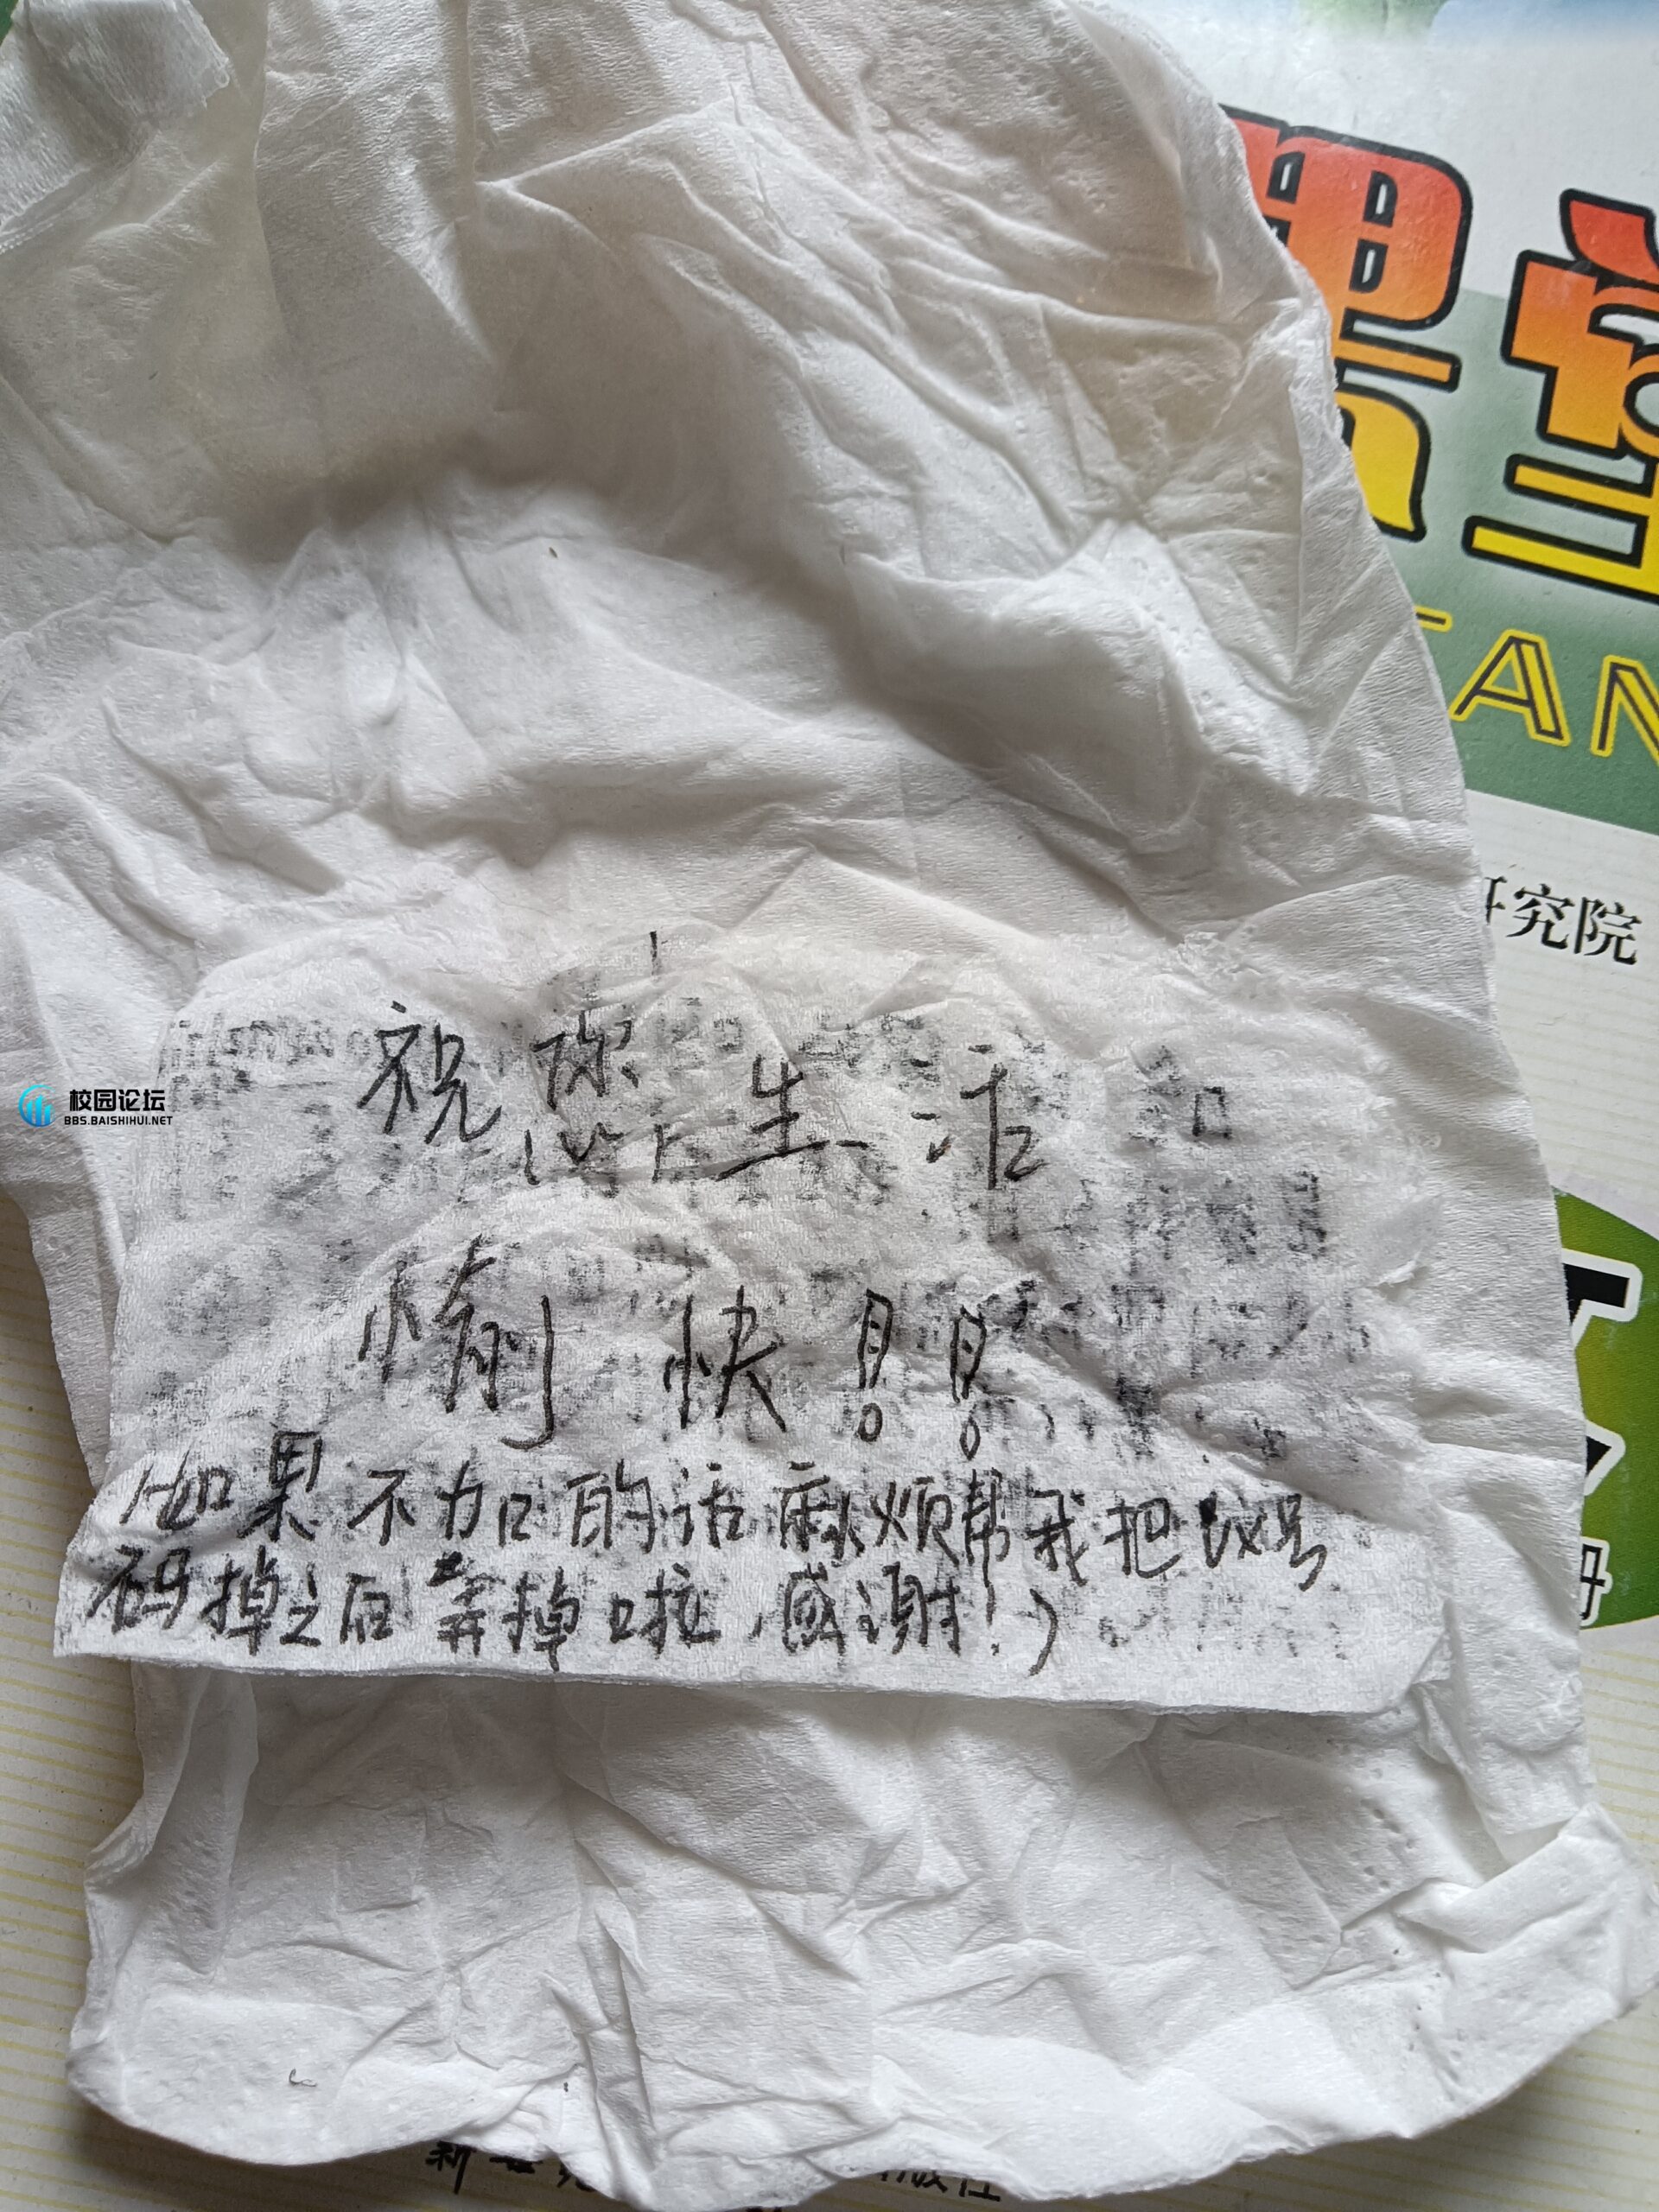 课堂
TAN
研究院
校园论坛
BBS.BAISHIHUI.NET
祝您生活
愉快!!
如果不加的话麻烦帮我把 号
码掉之后弄掉啦,感谢!)